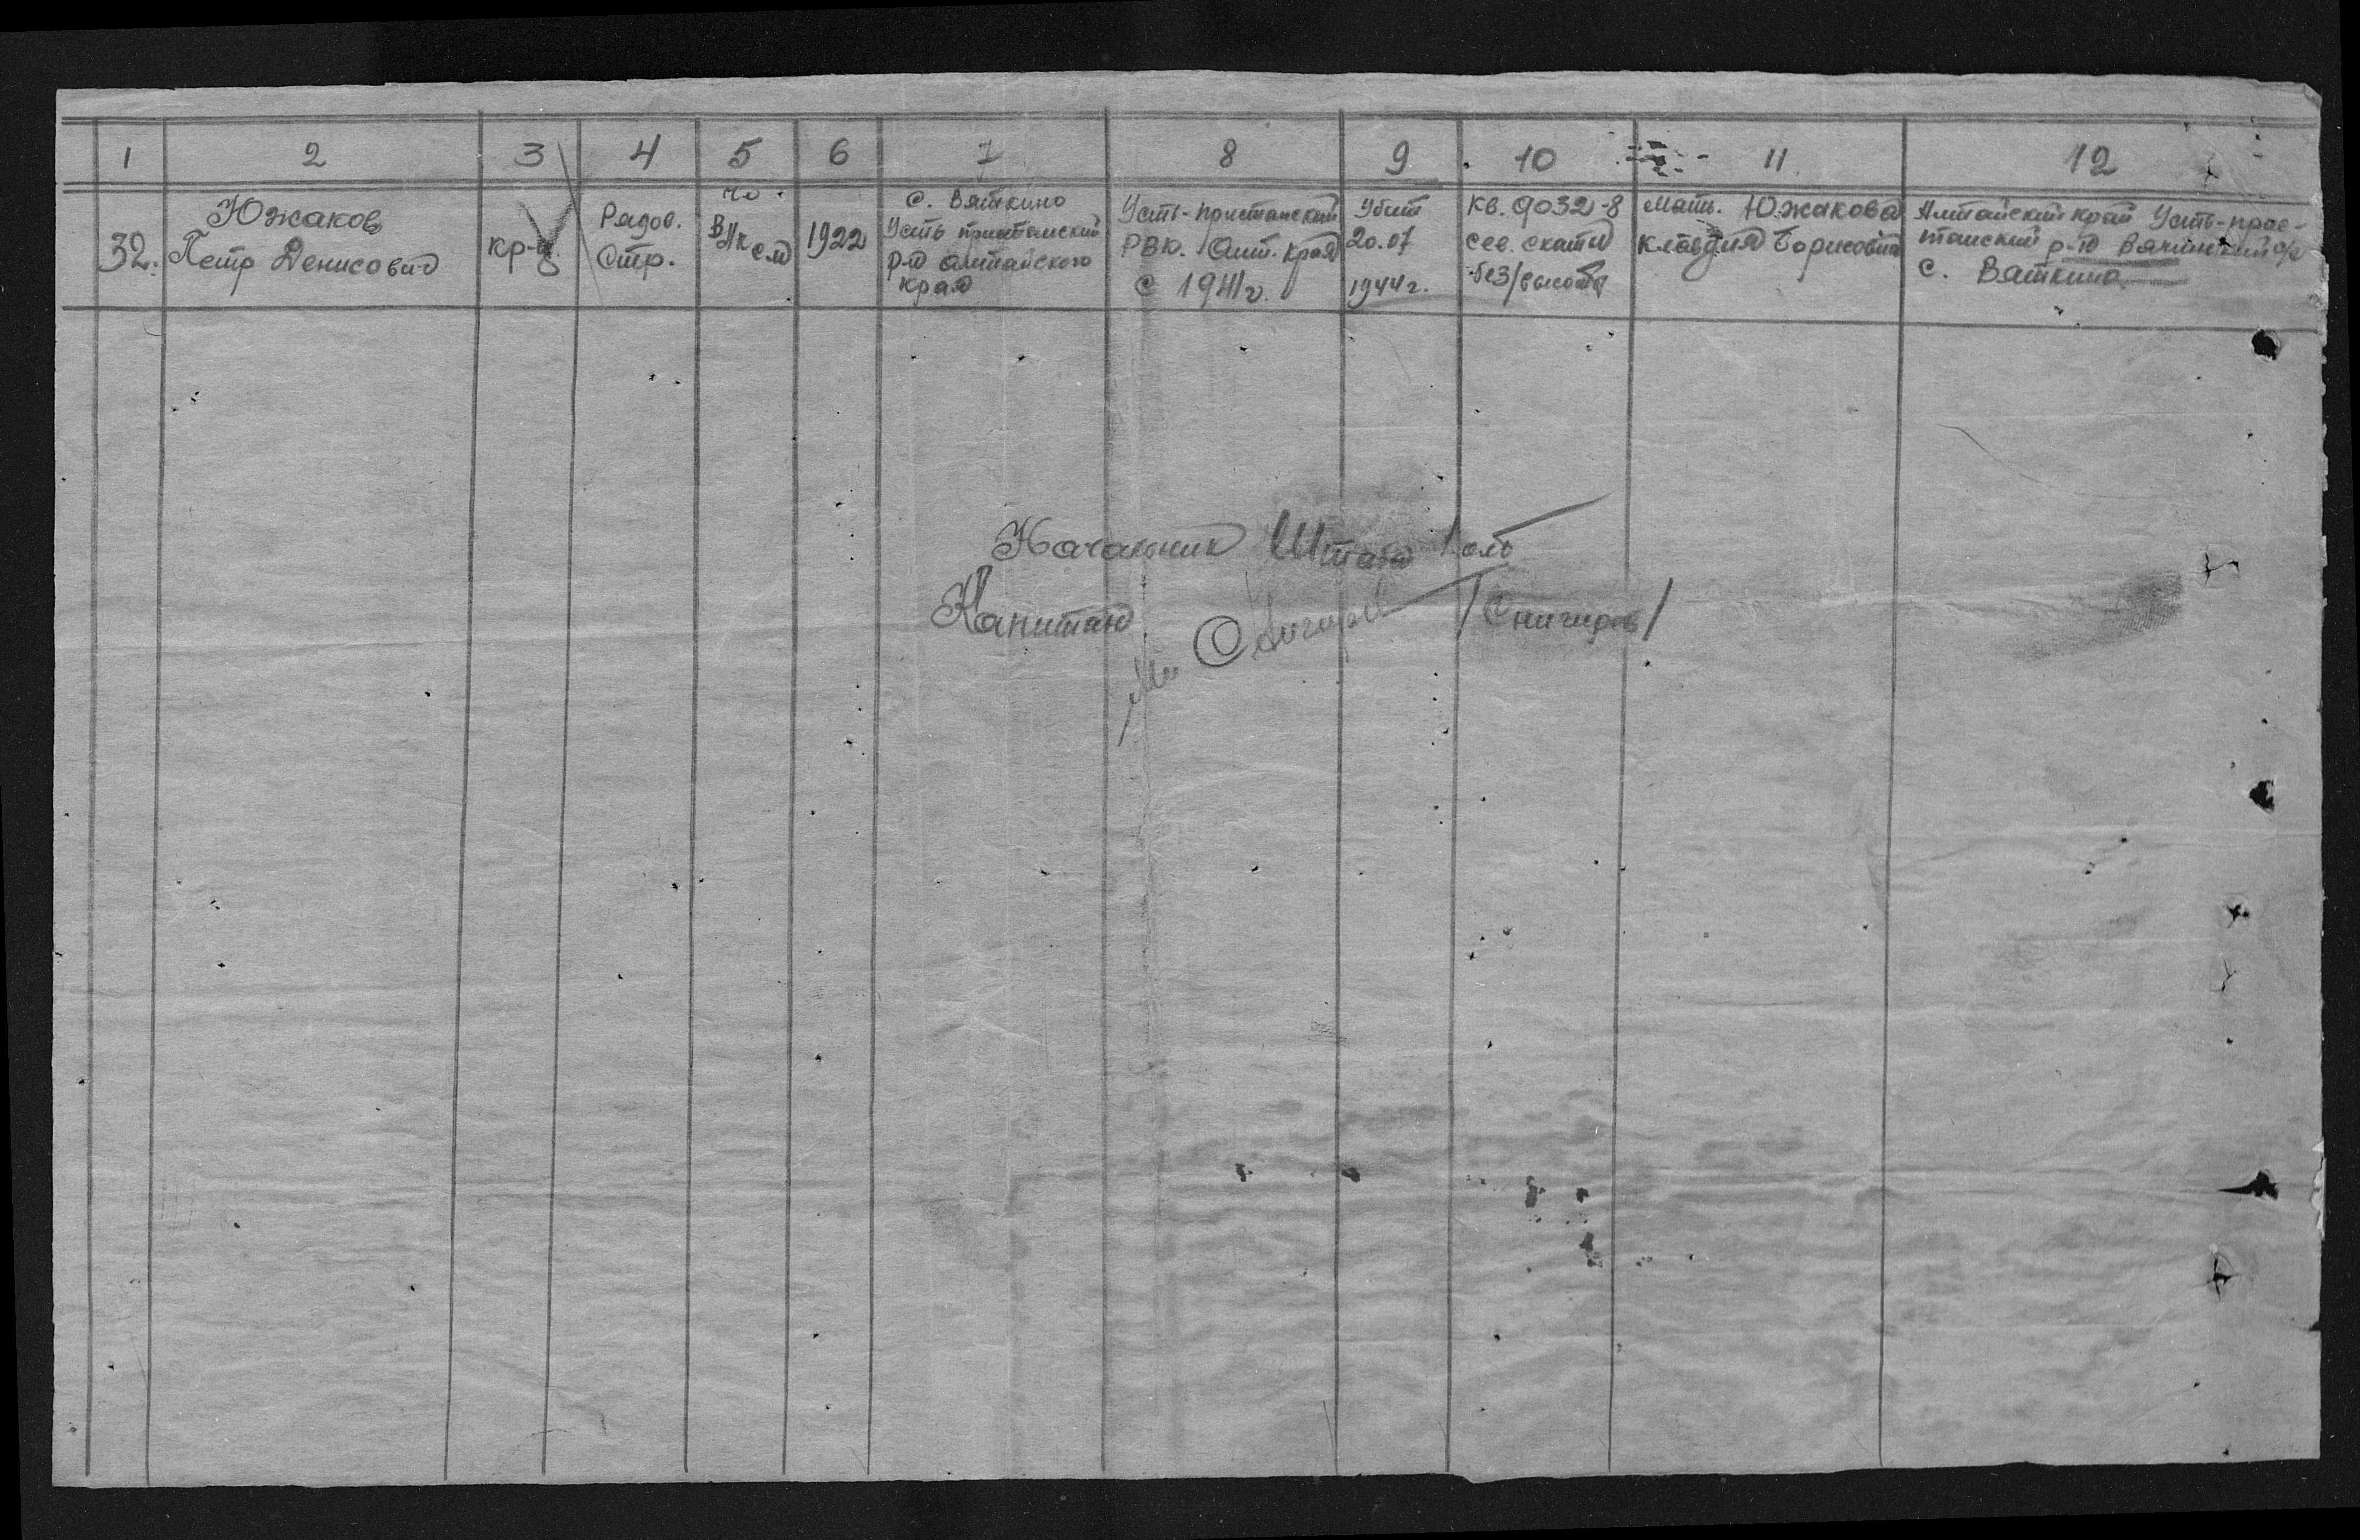 1 2 3 4 5 6 7 8 9 10 11 12
32.
Южаков
Петр Денисович
кр-ц
Рядов.
Стр.
Чл.
ВЛКСМ
1922
с. Вяткино
Усть пристанский
р-н Алтайского
края
Усть-пристанский
РВК. Алт. края
с 1941 г.
Убит
20.07
1944 г.
кв. 9032-8
сев. скаты
без/высоты
Мать. Южакова
Клавдия Борисовна
Алтайский край Усть-прис-
танский р-н
с. Вяткино
Начальник Штаба
Капитан /Снигирев/